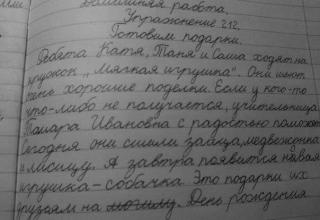 Домашняя работа.
Упражнение 212.
Готовим подарки.
Ребята Катя, Таня и Саша ходят на
кружок „Мягкая игрушка". Они шьют
очень хорошие поделки. Если у кого-то
что-либо не получается, учительница
Тамара Ивановна с радостью поможет.
Сегодня они сшили зайца, медвежонка
и лисицу. А завтра появится новая
игрушка-собачка. Это подарки их
друзьям на День рождения